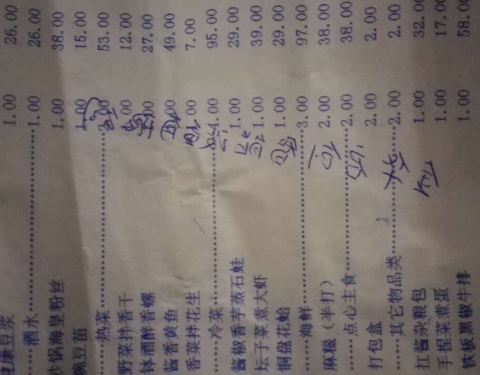 健康豆浆 1.00 26.00
酒水 1.00 26.00
砂锅海皇粉丝 1.00 38.00
豌豆苗 1.00 15.00
热菜 53.00
野菜拌香干 .00 12.00
钵酒醉香螺 .00 27.00
酱香黄鱼 .00 49.00
香菜拌花生 .00 7.00
冷菜 4.00 95.00
酱椒香芋蒸石蛙 1.00 29.00
坛子菜煮大虾 1.00 39.00
铜盘花蛤 1.00 29.00
海鲜 3.00 97.00
麻糍（半打） 2.00 38.00
点心主食 2.00 38.00
打包盒 2.00 2.00
其它物品类 2.00 2.00
扛酱杂粮包 1.00 32.00
手捏菜煮蛋 1.00 17.00
铁板黑椒牛排 1.00 58.00